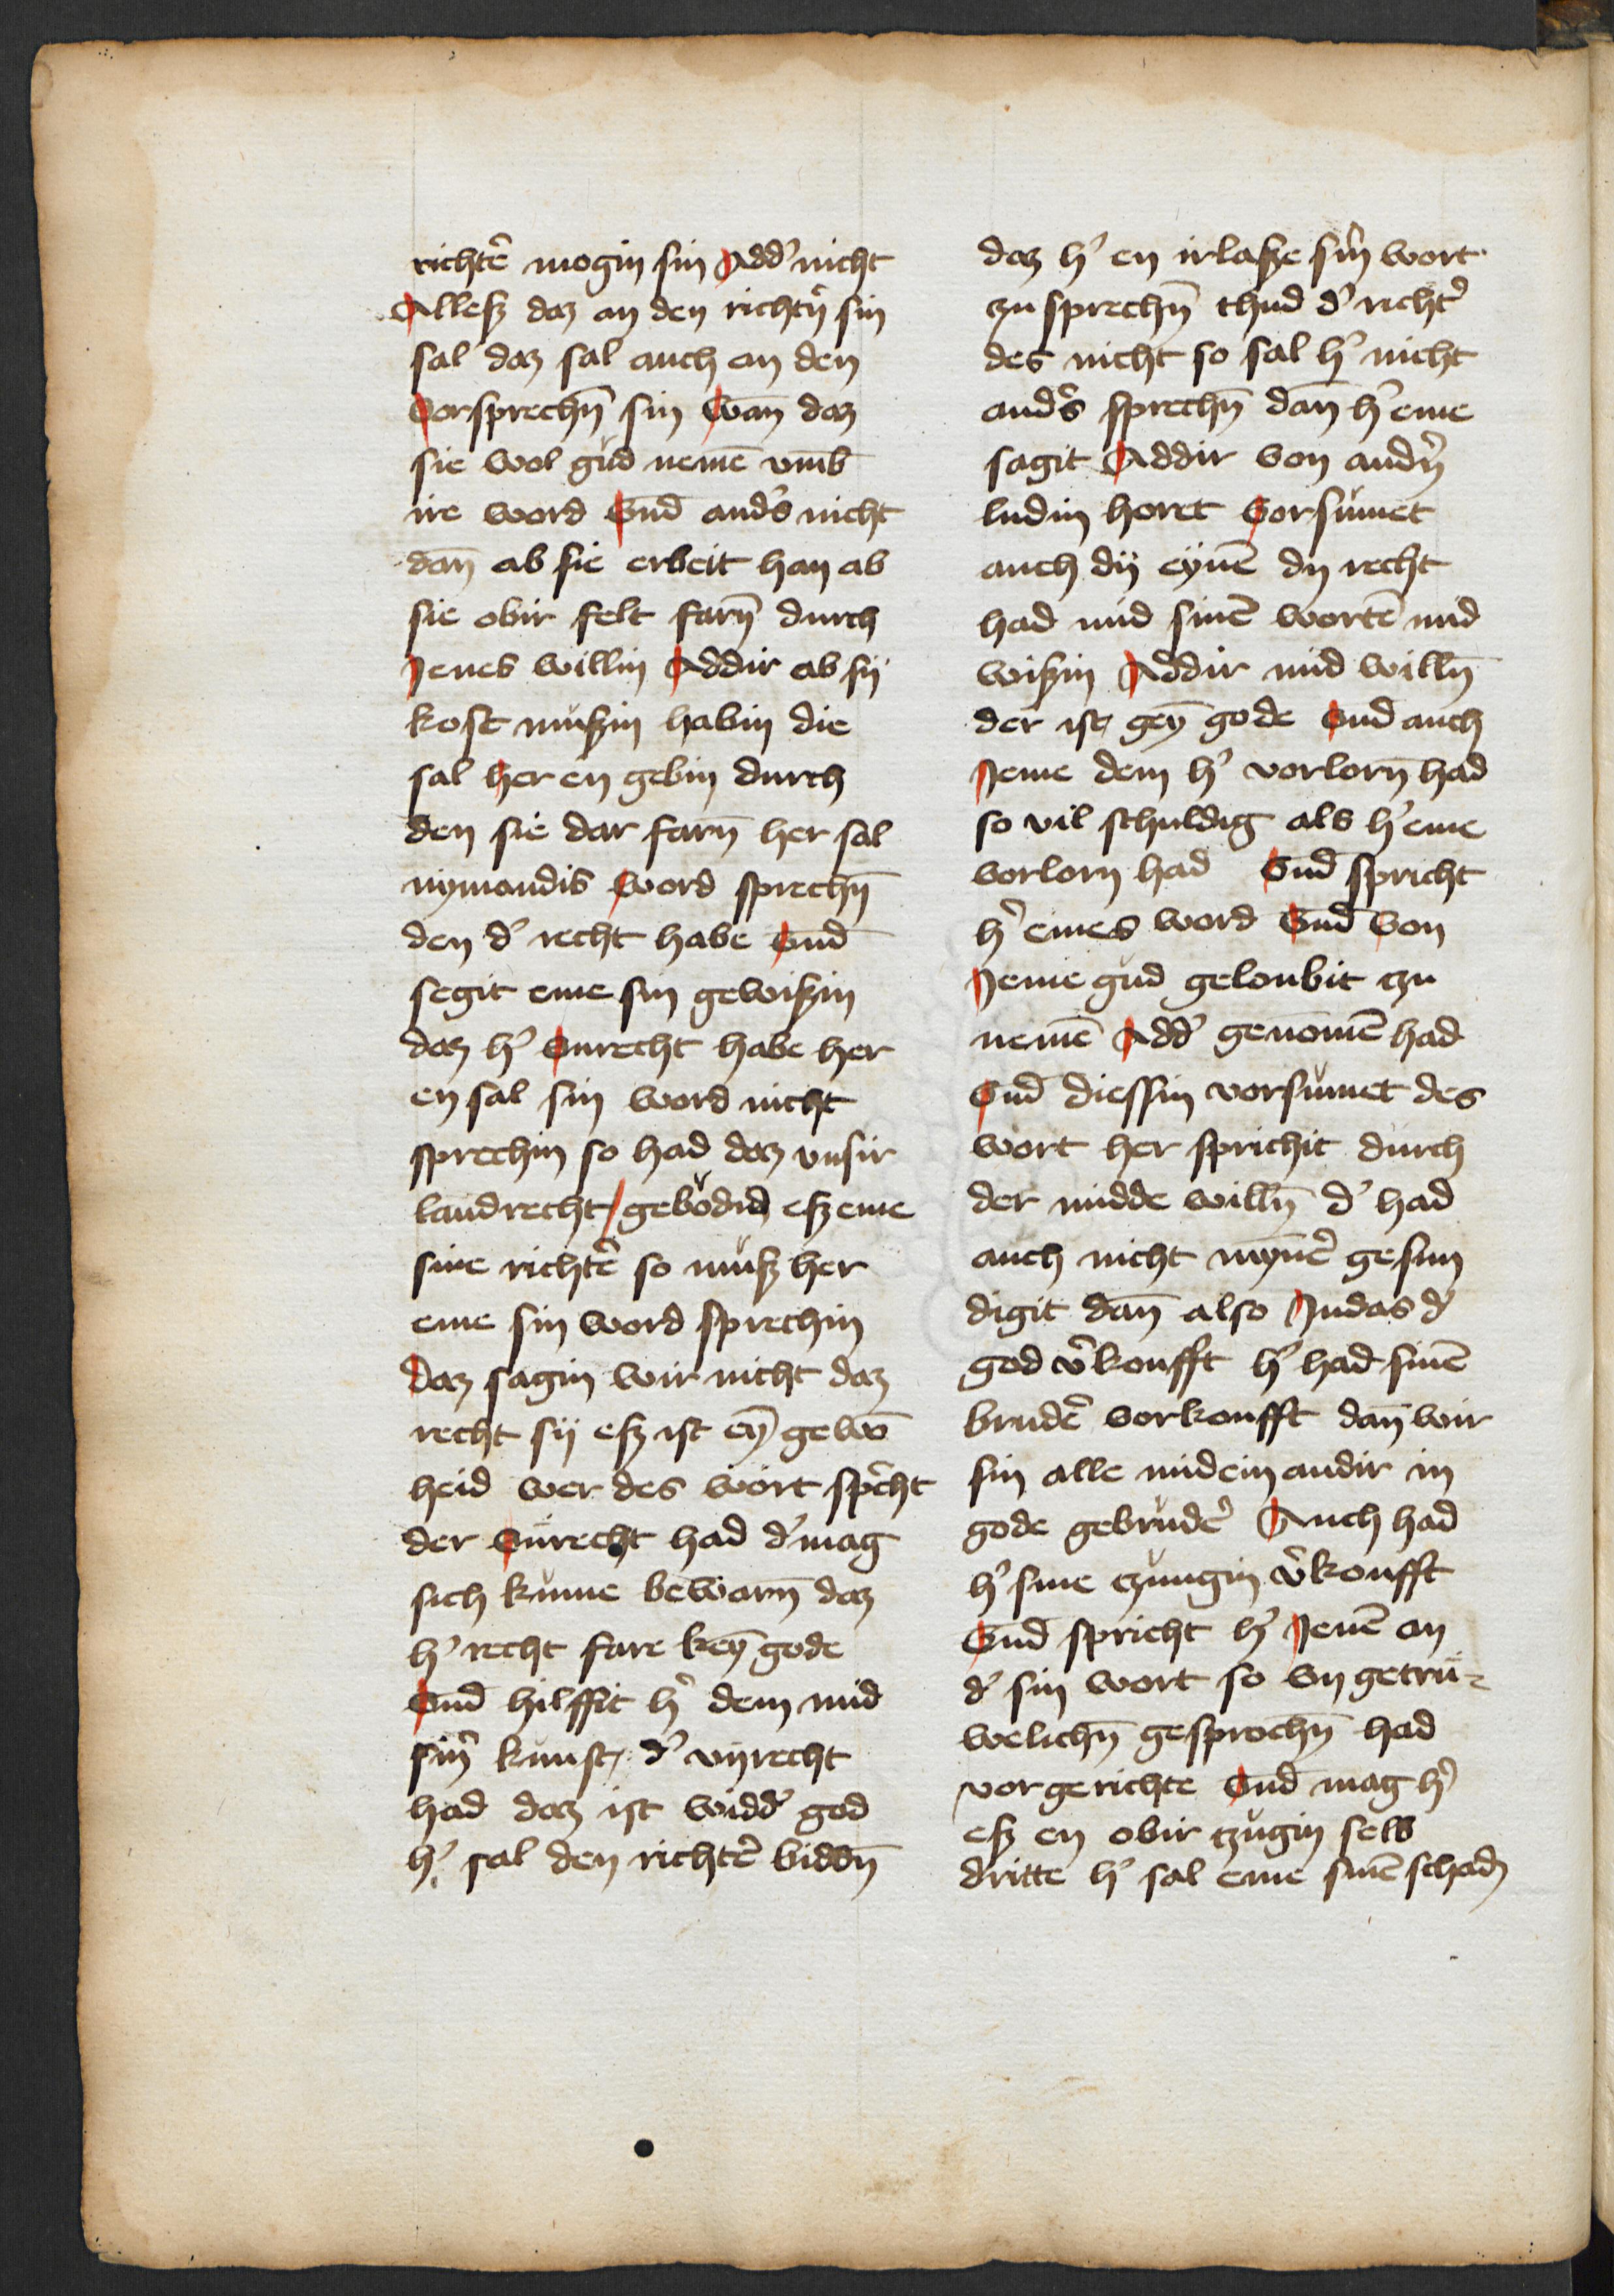 richtē mogin sin Add' nicht
Alleß daz an den richtn̄ sin
sal daz sal auch an den
vorsprechn̄ sin wan̄ daz
sie wol gud nemē vm̄b
ire word Vnd̄ and's nicht
dan̄ ab sie erbeit han ab
sie obir felt farn̄ durch
Jenes willin Addir ab sij
kost mußin habin die
sal her en gebin durch
den sie dar farn̄ her sal
nymandis word sprechn̄
den d' recht habe vnd̄
segit eme sin gewißin
daz h' vnrecht habe her
en sal sin word nicht
sprechin so had daz vnsir
landrecht / gebodid eß eme
sine richtē so muß her
eme sin word sprechin
daz sagin wir nicht daz
recht sij eß ist eyn̄ gewō
heid wer des wort sp'cht
der vnrecht had d' mag
sich kume bewarn̄ daz
h' recht fare keȳ gode
vnd̄ hilffit h' dem mid
sin' kunst d' vnrecht
had daz ist widd' god
h' sal den richtē biddn̄
daz h' en irlaße sin' wort
zu sprechn̄ thud d' richt'
des nicht so sal h' nicht
and's sprechn̄ dan̄ h' eme
sagit Addir von andn̄
ludin horet vorsumet
auch dij eynē dy recht
had mid sinē wortē mid
wißin Addir mid willn̄
der ist geȳ gode vnd auch
Jeme dem h' vorlorn̄ had
so vil schuldig als h' eme
vorlorn had Vnd̄ spricht
h' eines word Vnd̄ von
Jeme gud geloubit zu
nemē Add' genomē had
vnd̄ diessin vorsumet des
wort her sprichit durch
der midde willn̄ d' had
auch nicht mynē gesun
digit dan̄ also Judas d'
god v'koufft h' had sinē
brudē vorkoufft dan̄ wir
sin alle midein andir in
gode gebrudē Auch had
h' sine zungin v'koufft
Vnd̄ spricht h' Jenē an
d' sin wort so vn getru=
welichn̄ gesprochn̄ had
vor gerichte vnd̄ mag h'
eß en obir zugin selb
dritte h' sal eme sinē schadn̄